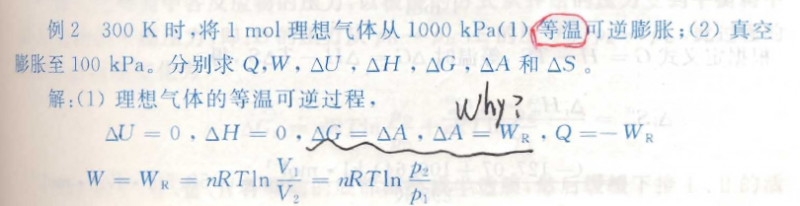 例2 300 K 时,将 1 mol 理想气体从 1000 kPa(1) 等温可逆膨胀;(2) 真空
膨胀至 100 kPa。分别求 Q,W,ΔU,ΔH,ΔG,ΔA 和 ΔS。
解:(1) 理想气体的等温可逆过程,
Why?
ΔU = 0,ΔH = 0,ΔG = ΔA,ΔA = W_R,Q = − W_R
W = W_R = nRTln V₁/V₂ = nRTln p₂/p₁